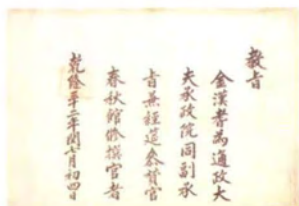 教旨
金漢耈爲通政大
夫承政院同副承
旨兼經筵參贊官
春秋館修撰官者
乾隆五十二年閏七月初四日